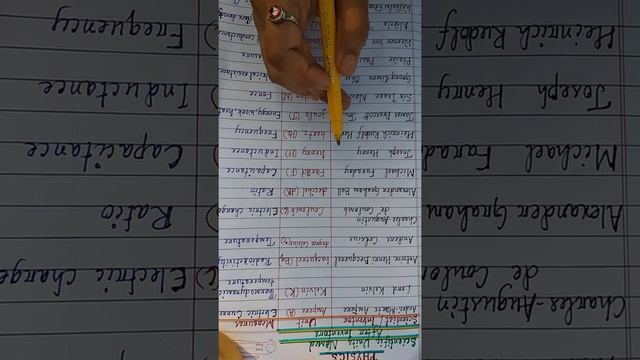 PHYSICS
Scientific Units Named
After Inventors
Scientist / Inventor Unit Measures
Andre-Marie Ampere Ampere (A) Electric Current
Lord Kelvin Kelvin (K) Thermodynamic
temperature
Antoine Henri Becquerel becquerel (Bq) Radioactivity
Anders Celsius degree Celsius Temperature
Charles-Augustin
de Coulomb Coulomb (C) Electric charge
Alexander Graham Bell decibel (dB) Ratio
Michael Faraday Farad (F) Capacitance
Joseph Henry henry (H) Inductance
Heinrich Rudolf Her hertz (Hz) Frequency
James Prescott Jou joule (J) Energy, work, heat
Sir Isaac Force
Georg Simon Ohm
Blaise Pas
Werner von
Nikola
Charles-Augustin
de Coulo Electric charge
Alexander Graham Ratio
Michael Farad Capacitance
Joseph Henry Inductance
Heinrich Rudolf Frequency